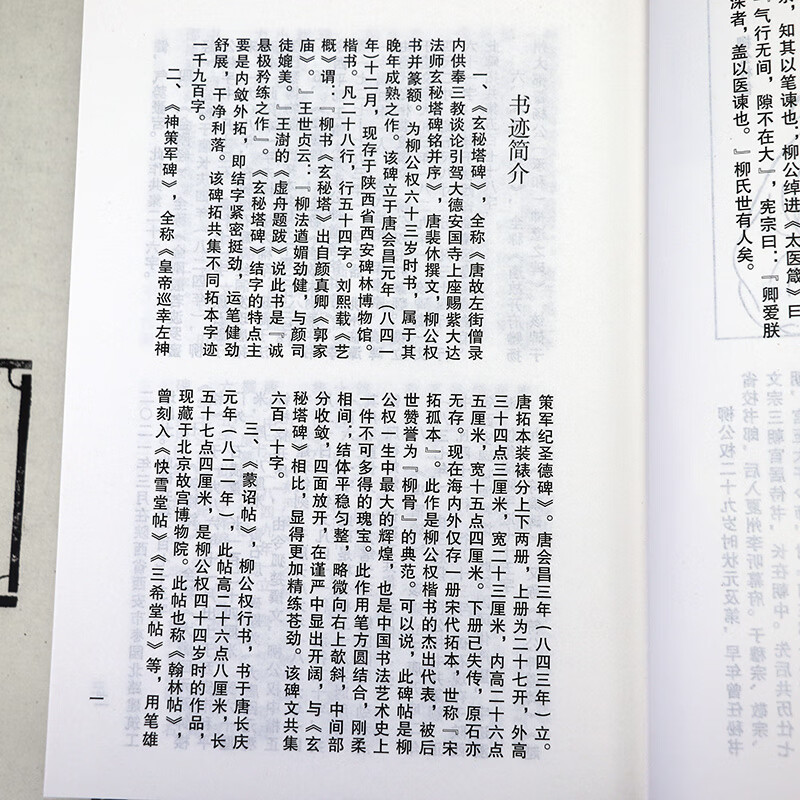 知其以笔谏也；柳公绰进《太医箴》曰
气行无间，隙不在大』，宪宗曰：『卿爱朕
深者，盖以医谏也。』柳氏世有人矣。
书迹简介
一、《玄秘塔碑》，全称《唐故左街僧录
内供奉三教谈论引驾大德安国寺上座赐紫大达
法师玄秘塔碑铭并序》，唐裴休撰文，柳公权
书并篆额。为柳公权六十三岁时书，属于其
晚年成熟之作。该碑立于唐会昌元年（八四一
年）十二月，现存于陕西省西安碑林博物馆。
楷书。凡二十八行，行五十四字。刘熙载《艺
概》谓：『柳书《玄秘塔》出自颜真卿《郭家
庙》。』王世贞云：『柳法遒媚劲健，与颜司
徒媲美。』王澍的《虚舟题跋》说此书是『诚
悬极矜练之作』。《玄秘塔碑》结字的特点主
要是内敛外拓，即结字紧密挺劲，运笔健劲
舒展，干净利落。该碑拓共集不同拓本字迹
一千九百字。
二、《神策军碑》，全称《皇帝巡幸左神
策军纪圣德碑》。唐会昌三年（八四三年）立。
唐拓本装裱分上下两册，上册为二十七开，外高
三十四点三厘米，宽二十三厘米，内高二十六点
五厘米，宽十五点四厘米。下册已失传，原石亦
无存。现在海内外仅存一册宋代拓本，世称『宋
拓孤本』。此作是柳公权楷书的杰出代表，被后
世赞誉为『柳骨』的典范。可以说，此碑帖是柳
公权一生中最大的辉煌，也是中国书法艺术史上
一件不可多得的瑰宝。此作用笔方圆结合，刚柔
相间；结体平稳匀整，略微向右上欹斜，中间部
分收敛，四面放开，在谨严中显出开阔，与《玄
秘塔碑》相比，显得更加精练苍劲。该碑文共集
六百一十字。
三、《蒙诏帖》，柳公权行书，书于唐长庆
元年（八二一年），此帖高二十六点八厘米，长
五十七点四厘米，是柳公权四十四岁时的作品，
现藏于北京故宫博物院。此帖也称《翰林帖》，
曾刻入《快雪堂帖》《三希堂帖》等，用笔雄
一